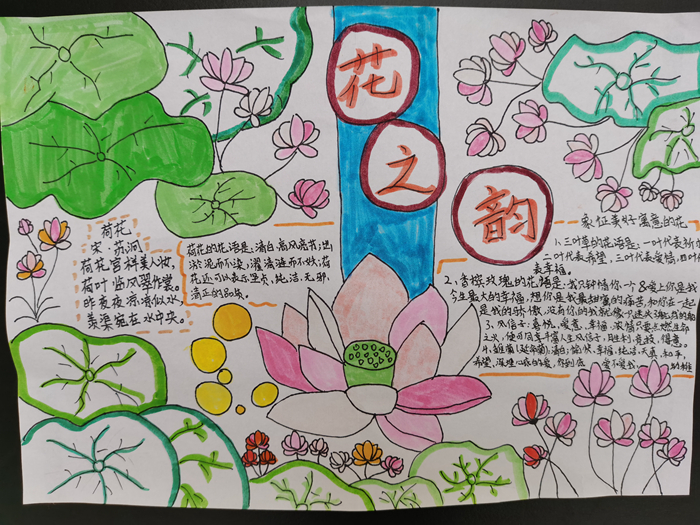 花
之
韵
荷花
宋·苏泂
荷花宫样美人妆,
荷叶临风翠作裳。
昨夜夜凉凉似水,
羡渠宛在水中央。
荷花的花语是:清白,高风亮节,出
淤泥而不染;濯清涟而不妖;荷
花还可以表示坚贞,纯洁,无邪,
清正的品质。
象征美好寓意的花
1、三叶草的花语是:一叶代表祈
二叶代表希望,三叶代表爱情,四叶代
表幸福。
2、香槟玫瑰的花语是:我只钟情你一个&爱上你是我
今生最大的幸福,想你是我最甜蜜的痛苦,和你在一起
是我的骄傲,没有你的我就像一只迷失了航线的船
3、风信子:喜悦,爱意,幸福,浓情只要点燃生命
之火,便可同享丰富人生风信子,胜利,竞技,得意。
希望,深埋心底的爱,你到底 爱不爱我